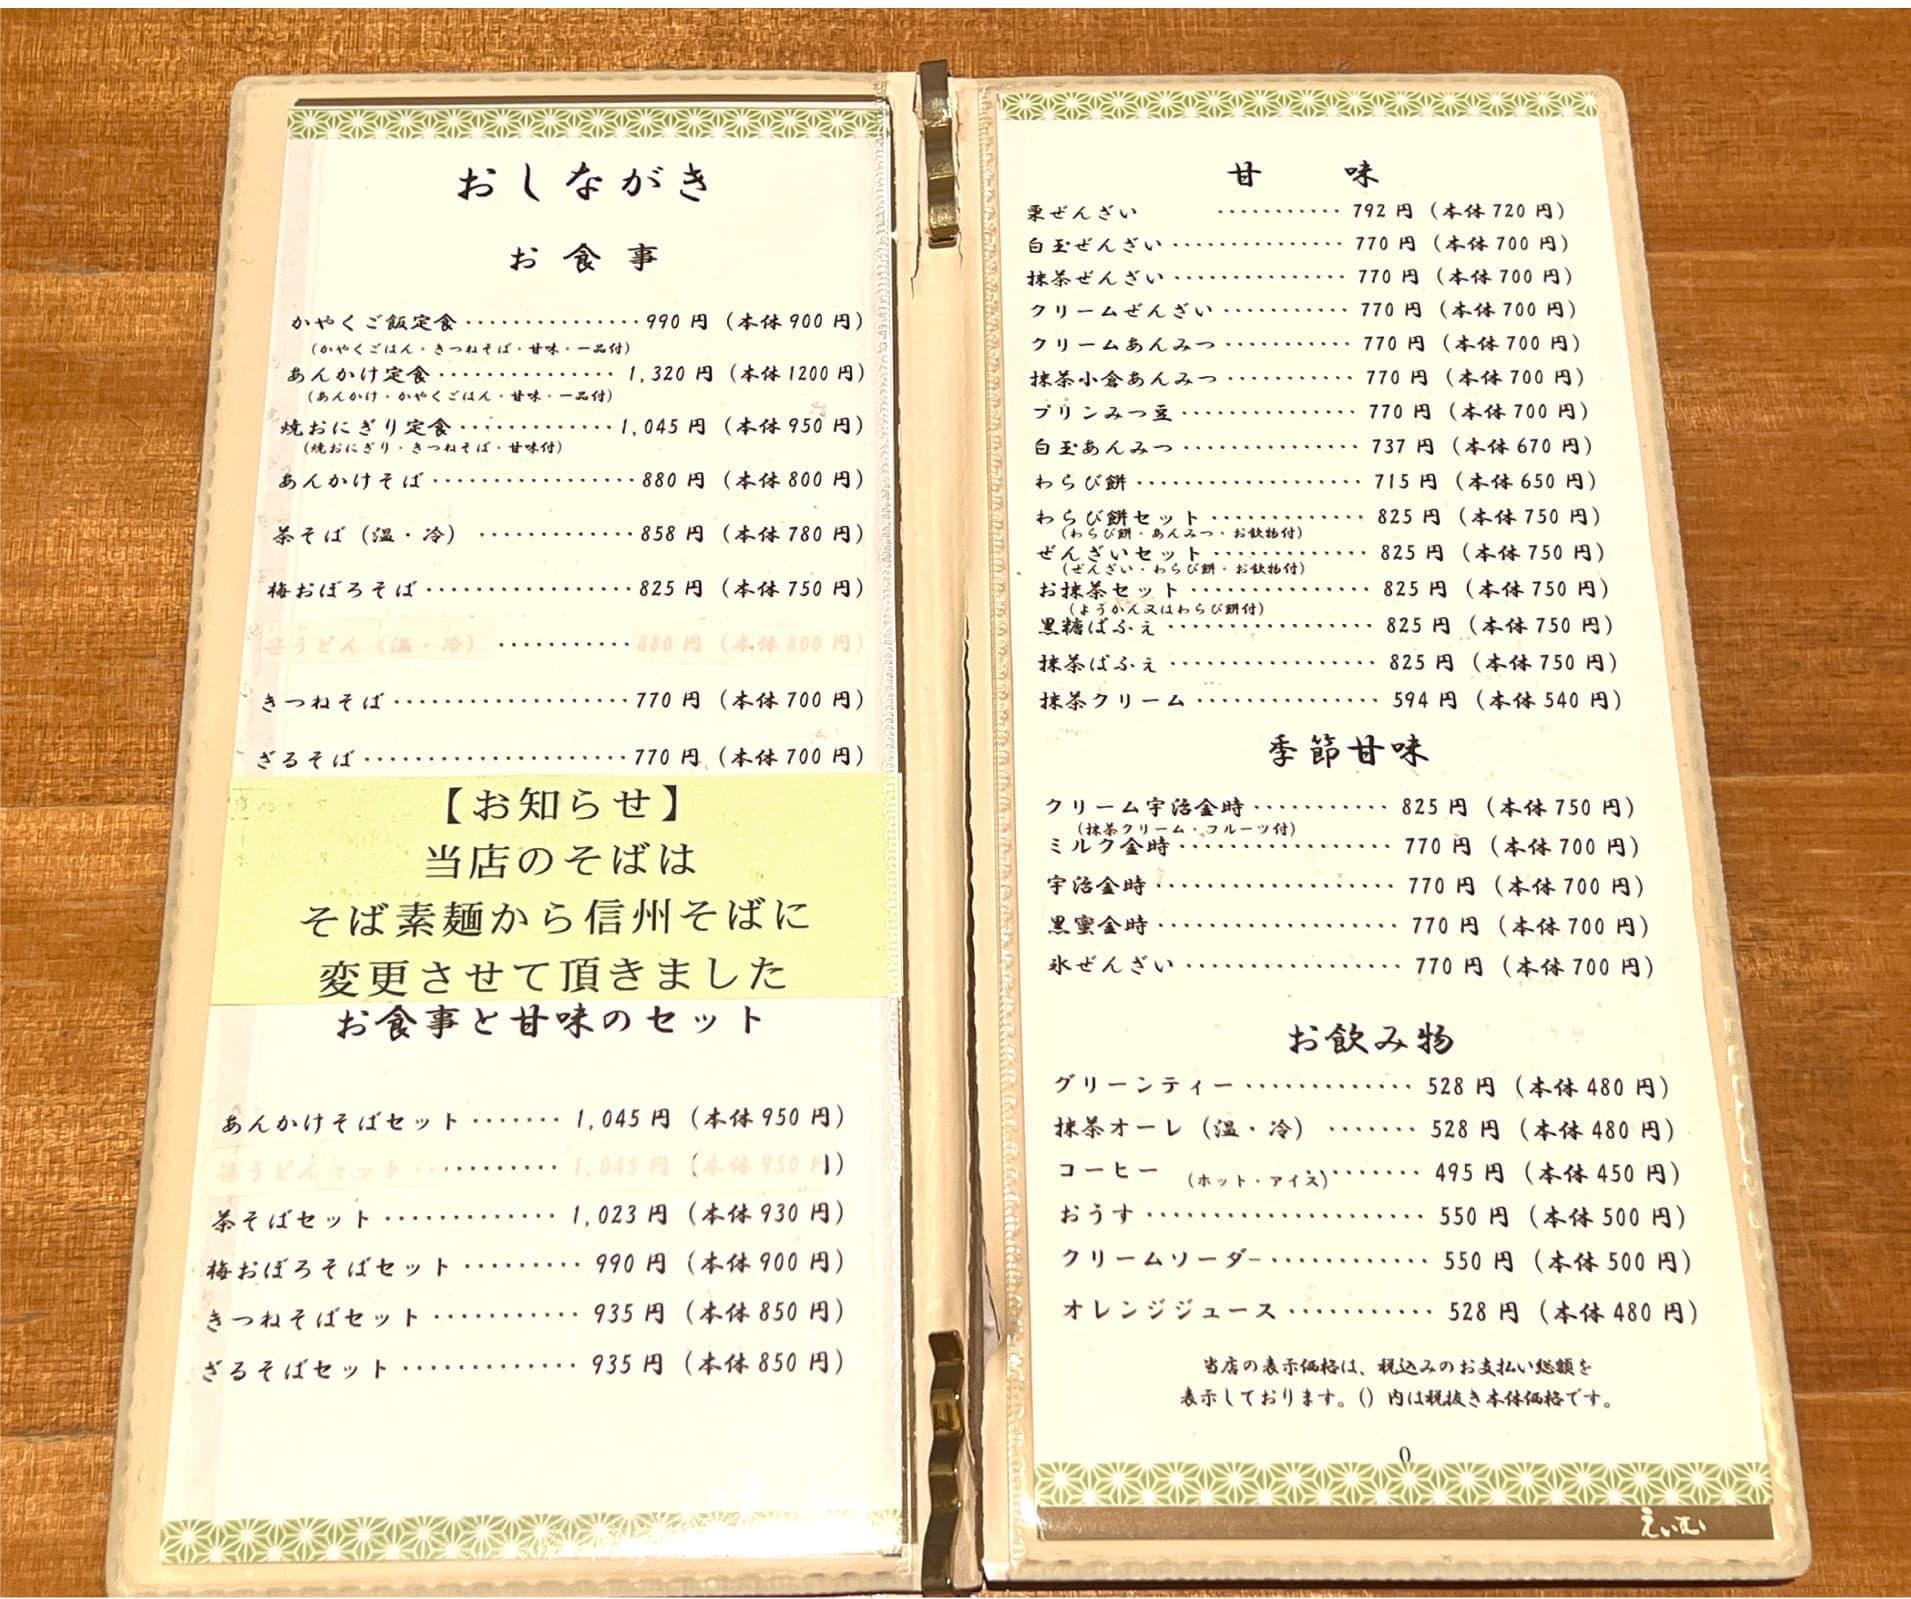 おしながき
お食事
かやくご飯定食・・・・・・・・・・・・・・・・990円(本体900円)
(かやくごはん・きつねそば・甘味・一品付)
あんかけ定食・・・・・・・・・・・・・・・・1,320円(本体1200円)
(あんかけ・かやくごはん・甘味・一品付)
焼おにぎり定食・・・・・・・・・・・・・・1,045円(本体950円)
(焼おにぎり・きつねそば・甘味付)
あんかけそば・・・・・・・・・・・・・・・・・・880円(本体800円)
茶そば(温・冷)・・・・・・・・・・・・・・858円(本体780円)
梅おぼろそば・・・・・・・・・・・・・・・・・・825円(本体750円)
うどん(温・冷)・・・・・・・・・・・・880円(本体800円)
きつねそば・・・・・・・・・・・・・・・・・・・・770円(本体700円)
ざるそば・・・・・・・・・・・・・・・・・・・・・・770円(本体700円)
【お知らせ】
当店のそばは
そば素麺から信州そばに
変更させて頂きました
お食事と甘味のセット
あんかけそばセット・・・・・・・・1,045円(本体950円)
うどんセット・・・・・・・・・・・・1,045円(本体950円)
茶そばセット・・・・・・・・・・・・・1,023円(本体930円)
梅おぼろそばセット・・・・・・・・・990円(本体900円)
きつねそばセット・・・・・・・・・・・935円(本体850円)
ざるそばセット・・・・・・・・・・・・・935円(本体850円)
甘味
栗ぜんざい・・・・・・・・・・・792円(本体720円)
白玉ぜんざい・・・・・・・・・・・・・・・770円(本体700円)
抹茶ぜんざい・・・・・・・・・・・・・・・770円(本体700円)
クリームぜんざい・・・・・・・・・・・770円(本体700円)
クリームあんみつ・・・・・・・・・・・770円(本体700円)
抹茶小倉あんみつ・・・・・・・・・・・770円(本体700円)
プリンみつ豆・・・・・・・・・・・・・・・770円(本体700円)
白玉あんみつ・・・・・・・・・・・・・・・737円(本体670円)
わらび餅・・・・・・・・・・・・・・・・・・・・715円(本体650円)
わらび餅セット・・・・・・・・・・・・・825円(本体750円)
(わらび餅・あんみつ・お飲物付)
ぜんざいセット・・・・・・・・・・・・・825円(本体750円)
(ぜんざい・わらび餅・お飲物付)
お抹茶セット・・・・・・・・・・・・・・・825円(本体750円)
(ようかん又はわらび餅付)
黒糖ぱふぇ・・・・・・・・・・・・・・・・・・825円(本体750円)
抹茶ぱふぇ・・・・・・・・・・・・・・・・・・825円(本体750円)
抹茶クリーム・・・・・・・・・・・・・・・・594円(本体540円)
季節甘味
クリーム宇治金時・・・・・・・・・・・・825円(本体750円)
(抹茶クリーム・フルーツ付)
ミルク金時・・・・・・・・・・・・・・・・・・770円(本体700円)
宇治金時・・・・・・・・・・・・・・・・・・・・770円(本体700円)
黒蜜金時・・・・・・・・・・・・・・・・・・・・770円(本体700円)
氷ぜんざい・・・・・・・・・・・・・・・・・・770円(本体700円)
お飲み物
グリーンティー・・・・・・・・・・・・・528円(本体480円)
抹茶オーレ(温・冷)・・・・・・・528円(本体480円)
コーヒー(ホット・アイス)・・・・・・・495円(本体450円)
おうす・・・・・・・・・・・・・・・・・・・・・・・550円(本体500円)
クリームソーダー・・・・・・・・・・・・550円(本体500円)
オレンジジュース・・・・・・・・・・・528円(本体480円)
当店の表示価格は、税込みのお支払い総額を
表示しております。()内は税抜き本体価格です。
0
えいむ